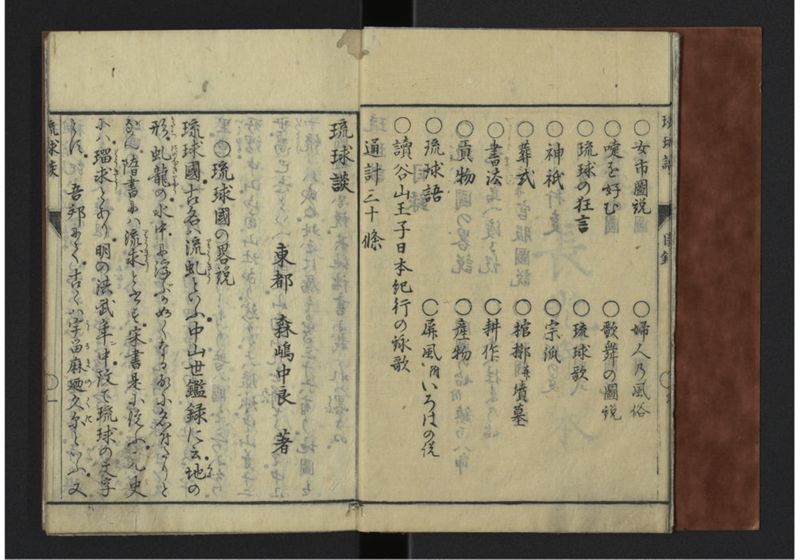 ○女市圖説
○婦人乃風俗
○唾を好む圖
○歌舞の圖説
○琉球の狂言
○琉球歌
○神祇
○宗派
○葬式
○棺槨并墳墓
○書法
○耕作
○貢物
○産物
○琉球語
○屏風附いろはの説
○讀谷山王子日本紀行の詠歌
通計三十條
琉球談
東都 森嶋中良 著
○琉球國の畧説
琉球國古名ハ流虬といふ中山世鑑録に云地の
形虬龍の水中に浮ぶがめくなる
隋書にハ流求とす宋書是に従ふ元史
にハ瑠求とあり明の洪武年中改て琉球の文字
吾邦にて古くハ宇留麻廼久尓といふ又
琉球談
目録
琉球談
一